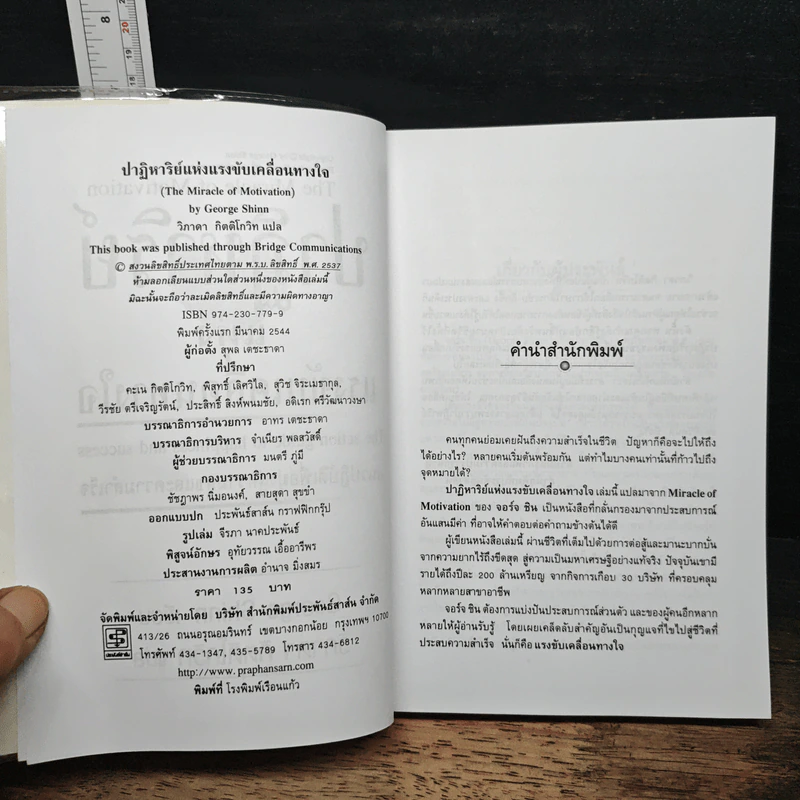 8
20
19
18
ปาฏิหาริย์แห่งแรงขับเคลื่อนทางใจ
(The Miracle of Motivation)
by George Shinn
วิภาดา กิตติโกวิท แปล
This book was published through Bridge Communications
© สงวนลิขสิทธิ์ประเทศไทยตาม พ.ร.บ. ลิขสิทธิ์ พ.ศ. 2537
ห้ามลอกเลียนแบบส่วนใดส่วนหนึ่งของหนังสือเล่มนี้
มิฉะนั้นจะถือว่าละเมิดลิขสิทธิ์และมีความผิดทางอาญา
ISBN 974-230-779-9
พิมพ์ครั้งแรก มีนาคม 2544
ผู้ก่อตั้ง สุพล เตชะธาดา
ที่ปรึกษา
คะเน กิตติโกวิท, พิสุทธิ์ เลิศวิไล, สุวิช จิระเมธากุล,
วีรชัย ตรีเจริญรัตน์, ประสิทธิ์ สิงห์พนมชัย, อดิเรก ศรีวัฒนาวงษา
บรรณาธิการอำนวยการ อาทร เตชะธาดา
บรรณาธิการบริหาร จำเนียร พลสวัสดิ์
ผู้ช่วยบรรณาธิการ มนตรี ภู่มี
กองบรรณาธิการ
ชัชฎาพร นิ่มอนงค์, สายสุดา สุขขำ
ออกแบบปก ประพันธ์สาส์น กราฟฟิกกรุ๊ป
รูปเล่ม จีรภา นาคประพันธ์
พิสูจน์อักษร อุทัยวรรณ เอื้ออารีพร
ประสานงานการผลิต อำนาจ มิ่งสมร
ราคา 135 บาท
จัดพิมพ์และจำหน่ายโดย บริษัท สำนักพิมพ์ประพันธ์สาส์น จำกัด
413/26 ถนนอรุณอมรินทร์ เขตบางกอกน้อย กรุงเทพฯ 10700
โทรศัพท์ 434-1347, 435-5789 โทรสาร 434-6812
http://www.praphansarn.com
พิมพ์ที่ โรงพิมพ์เรือนแก้ว
คำนำสำนักพิมพ์
คนทุกคนย่อมเคยฝันถึงความสำเร็จในชีวิต ปัญหาก็คือจะไปให้ถึง
ได้อย่างไร? หลายคนเริ่มต้นพร้อมกัน แต่ทำไมบางคนเท่านั้นที่ก้าวไปถึง
จุดหมายได้?
ปาฏิหาริย์แห่งแรงขับเคลื่อนทางใจ เล่มนี้ แปลมาจาก Miracle of
Motivation ของ จอร์จ ชิน เป็นหนังสือที่กลั่นกรองมาจากประสบการณ์
อันแสนมีค่า ที่อาจให้คำตอบต่อคำถามข้างต้นได้ดี
ผู้เขียนหนังสือเล่มนี้ ผ่านชีวิตที่เต็มไปด้วยการต่อสู้และมานะบากบั่น
จากความยากไร้ถึงขีดสุด สู่ความเป็นมหาเศรษฐีอย่างแท้จริง ปัจจุบันเขามี
รายได้ถึงปีละ 200 ล้านเหรียญ จากกิจการเกือบ 30 บริษัท ที่ครอบคลุม
หลากหลายสาขาอาชีพ
จอร์จ ชิน ต้องการแบ่งปันประสบการณ์ส่วนตัว และของผู้คนอีกหลาก
หลายให้ผู้อ่านรับรู้ โดยเผยเคล็ดลับสำคัญอันเป็นกุญแจที่ไขไปสู่ชีวิตที่
ประสบความสำเร็จ นั่นก็คือ แรงขับเคลื่อนทางใจ